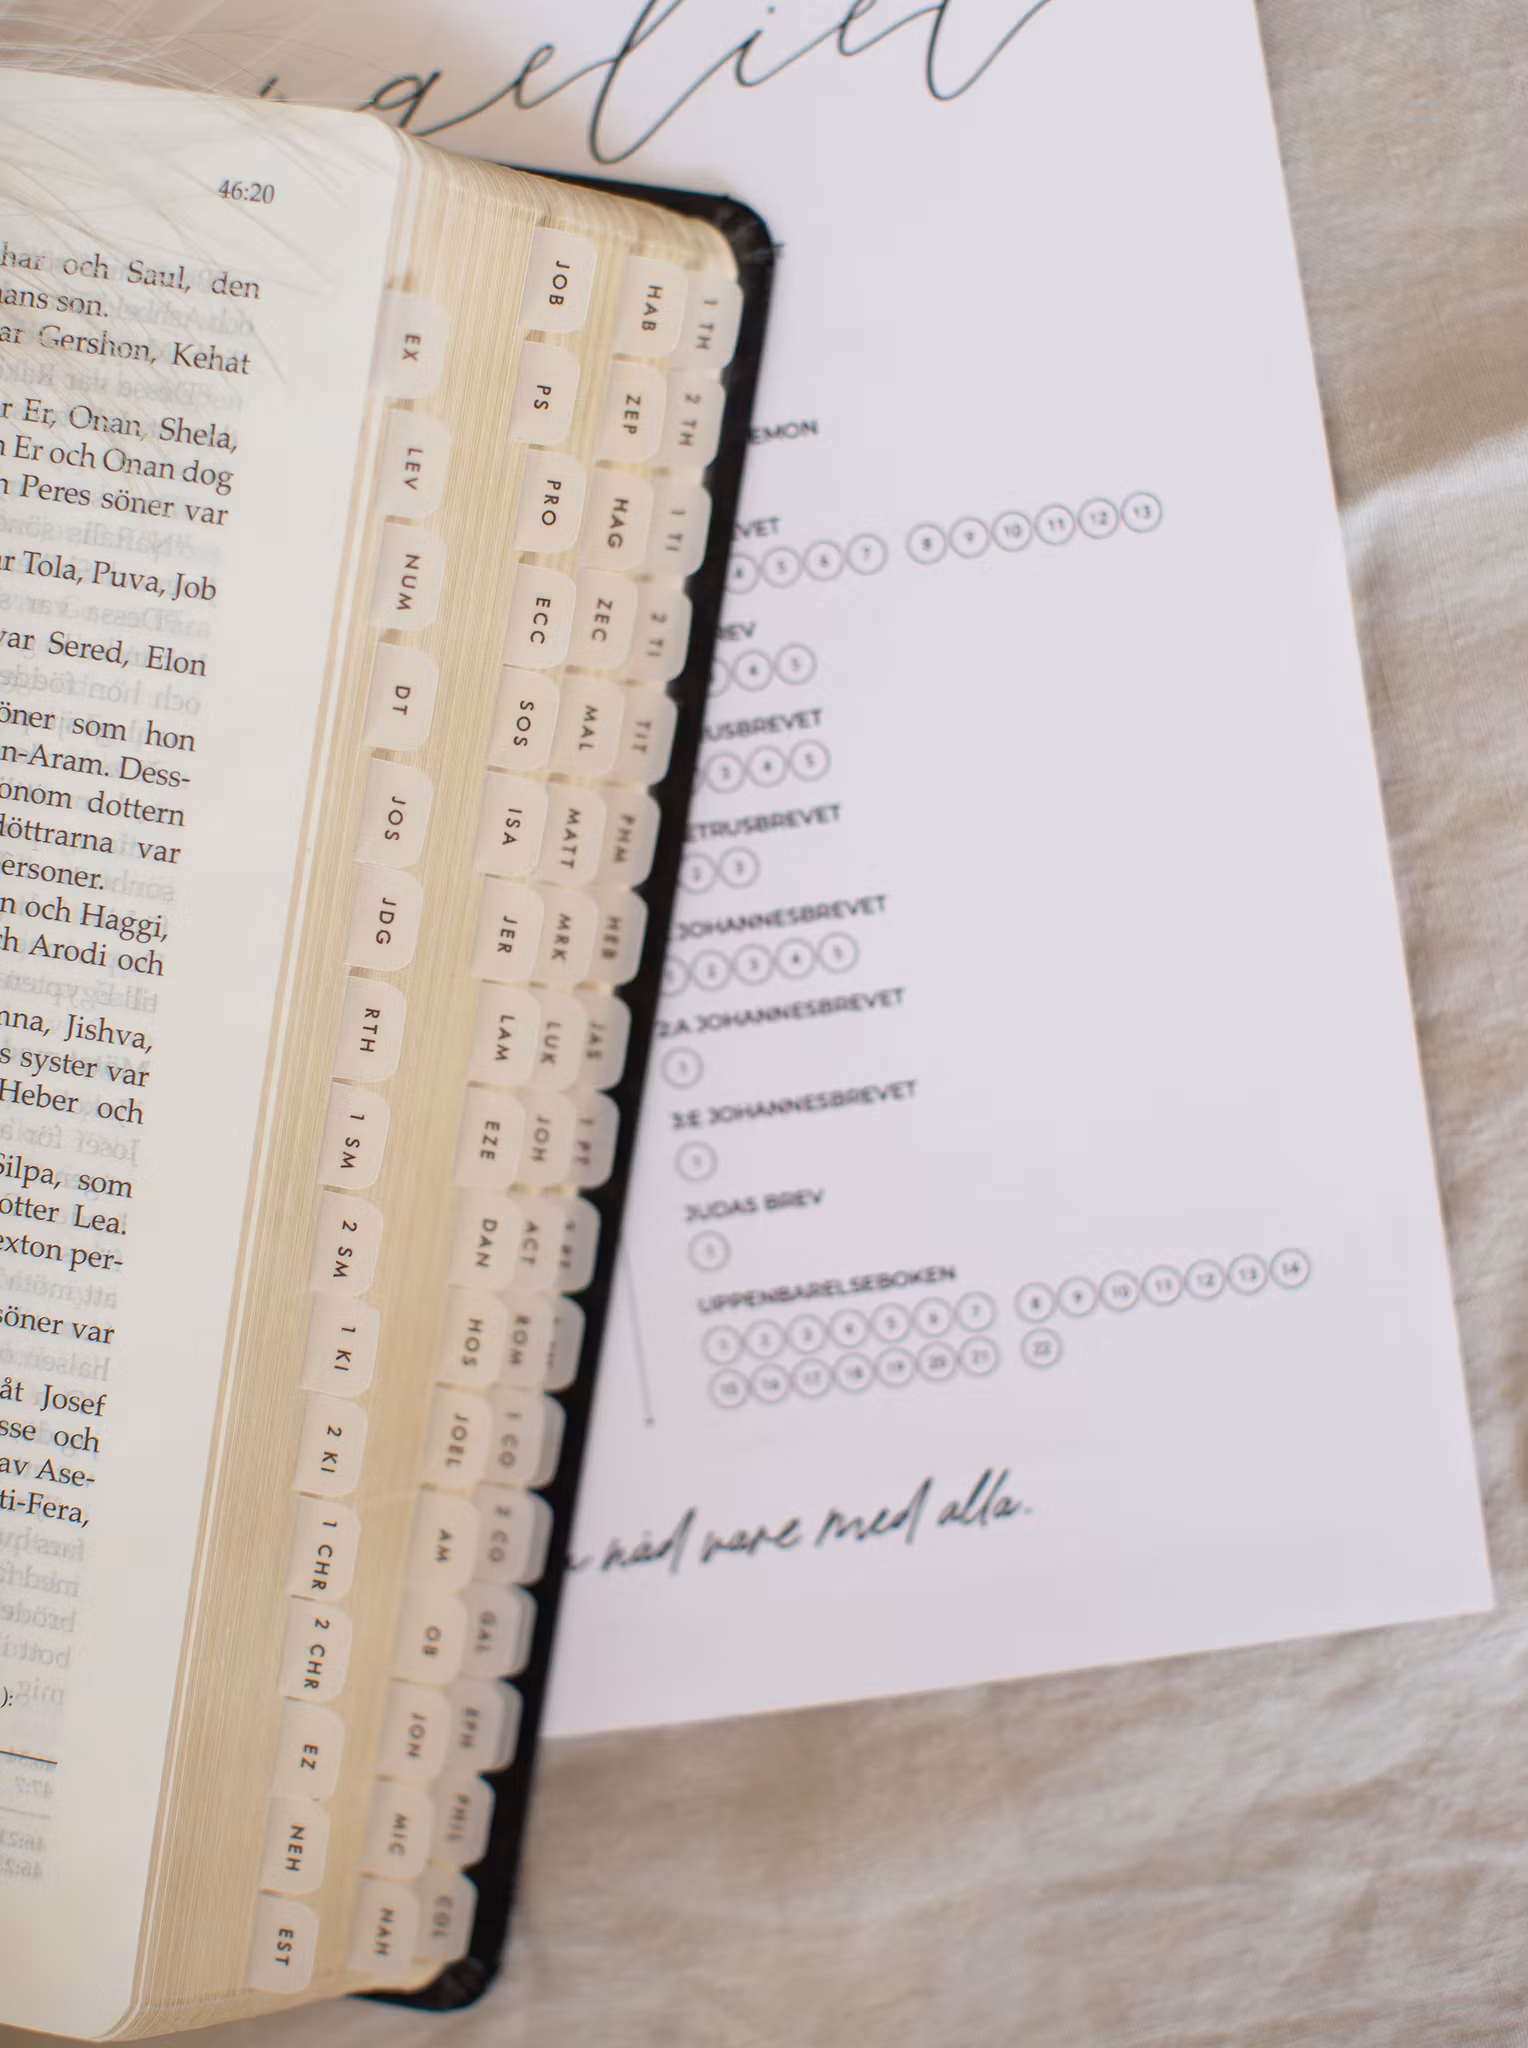 46:20
och Saul, den
son.
Gershon, Kehat
Er, Onan, Shela,
Er och Onan dog
Peres söner var
Tola, Puva, Job
var Sered, Elon
söner som hon
Dess-
dottern
döttrarna var
personer.
och Haggi,
Arodi och
Jishva,
syster var
Heber och
Silpa, som
Lea.
per-
söner var
åt Josef
och
av Ase-
EX
LEV
NUM
DT
JOS
JDG
RTH
1 SM
2 SM
1 KI
2 KI
1 CHR
2 CHR
EZ
NEH
EST
JOB
PS
PRO
ECC
SOS
ISA
JER
LAM
EZE
DAN
HOS
JOEL
AM
OB
JON
MIC
NAH
HAB
ZEP
HAG
ZEC
MAL
MATT
MRK
LUK
JOH
ACT
ROM
1 CO
2 CO
GAL
EPH
PHIL
COL
1 TH
2 TH
1 TI
2 TI
TIT
PHM
HEB
JAS
1 PT
4 5 6 7 8 9 10 11 12 13
4 5
3 4 5
2 3
JOHANNESBREVET
1 2 3 4 5
2:A JOHANNESBREVET
1
3:E JOHANNESBREVET
1
JUDAS BREV
1
UPPENBARELSEBOKEN
1 2 3 4 5 6 7 8 9 10 11 12 13 14
15 16 17 18 19 20 21 22
nåd vare med alla.